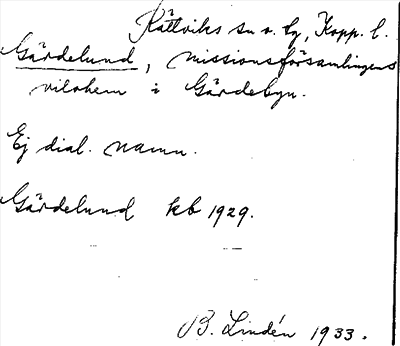 Rättviks sn o. lg, Kopp. l.
Gärdelund, missionsförsamlingens
vilohem i Gärdebyn.
Ej dial. namn.
Gärdelund kb 1929.
B. Lindén 1933.